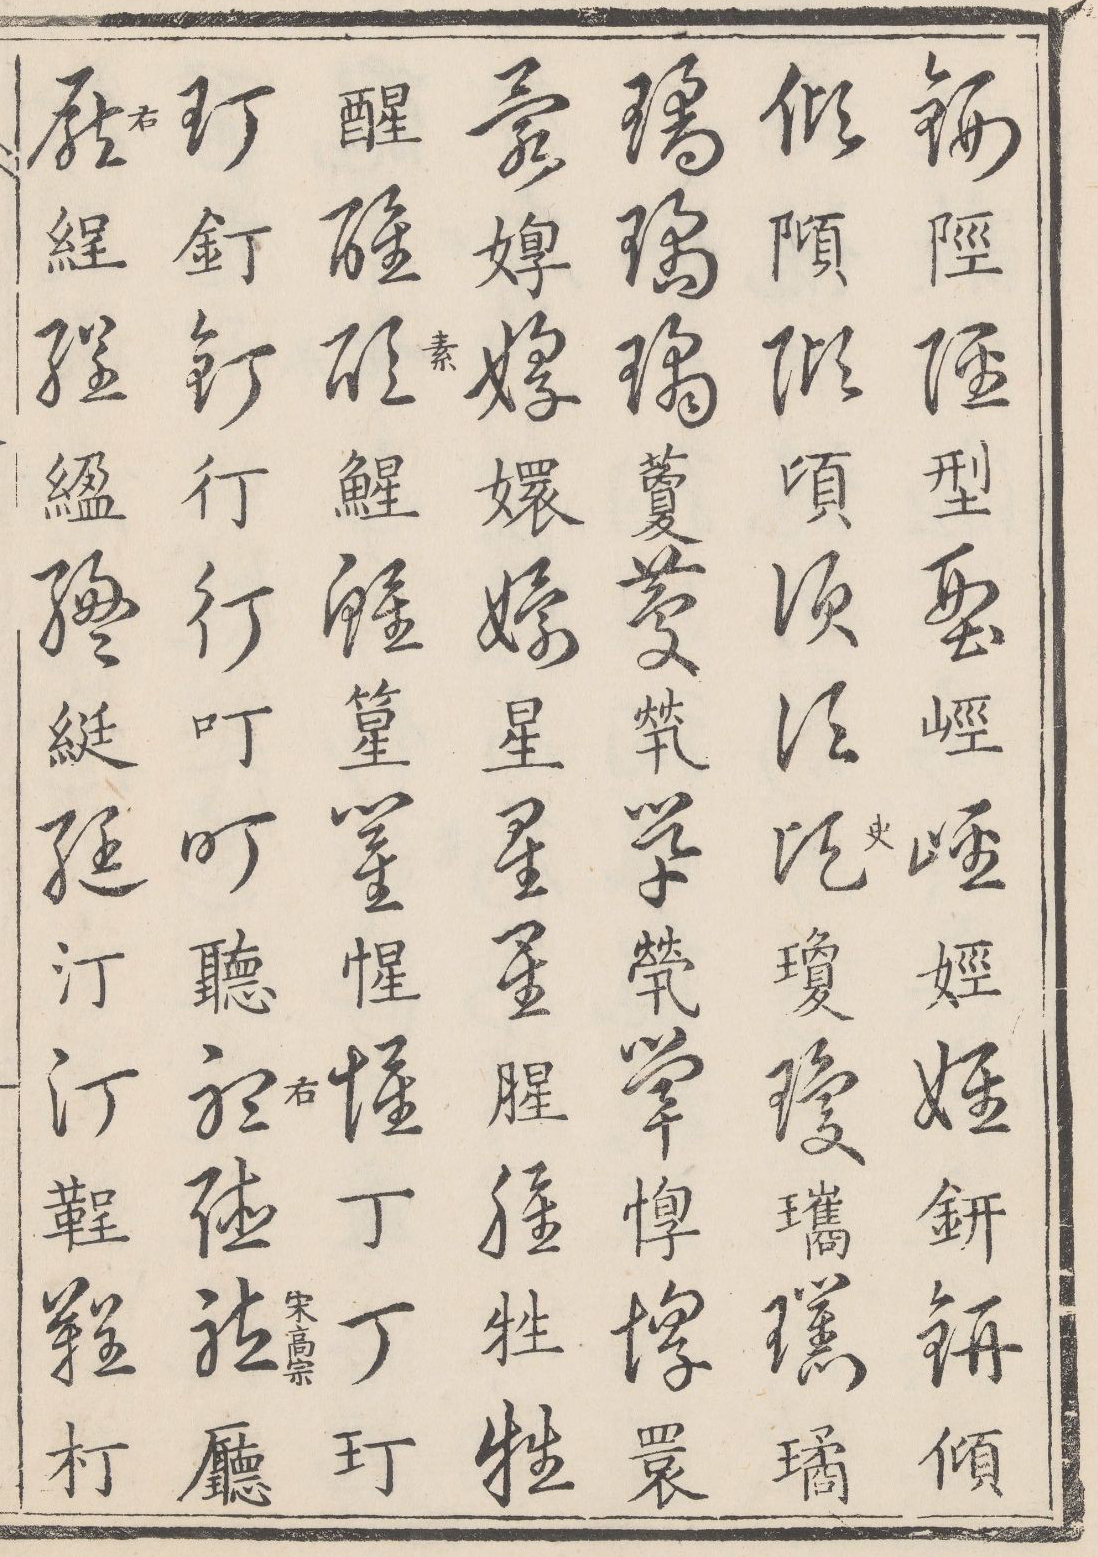 鈃陘陘型型娙娙鈃鈃傾
傾頃頃頃頃史瓊瓊瓗瓗璚
璚璚璚藑藑煢煢惸惸睘
睘嬛嬛星星星腥腥牲牲
醒醒醒素鯹鯹篂篂惺惺丁丁玎
玎釘釘叮叮聽聽右聽聽宋高宗廳
廳右綎綎汀汀鞓鞓朾